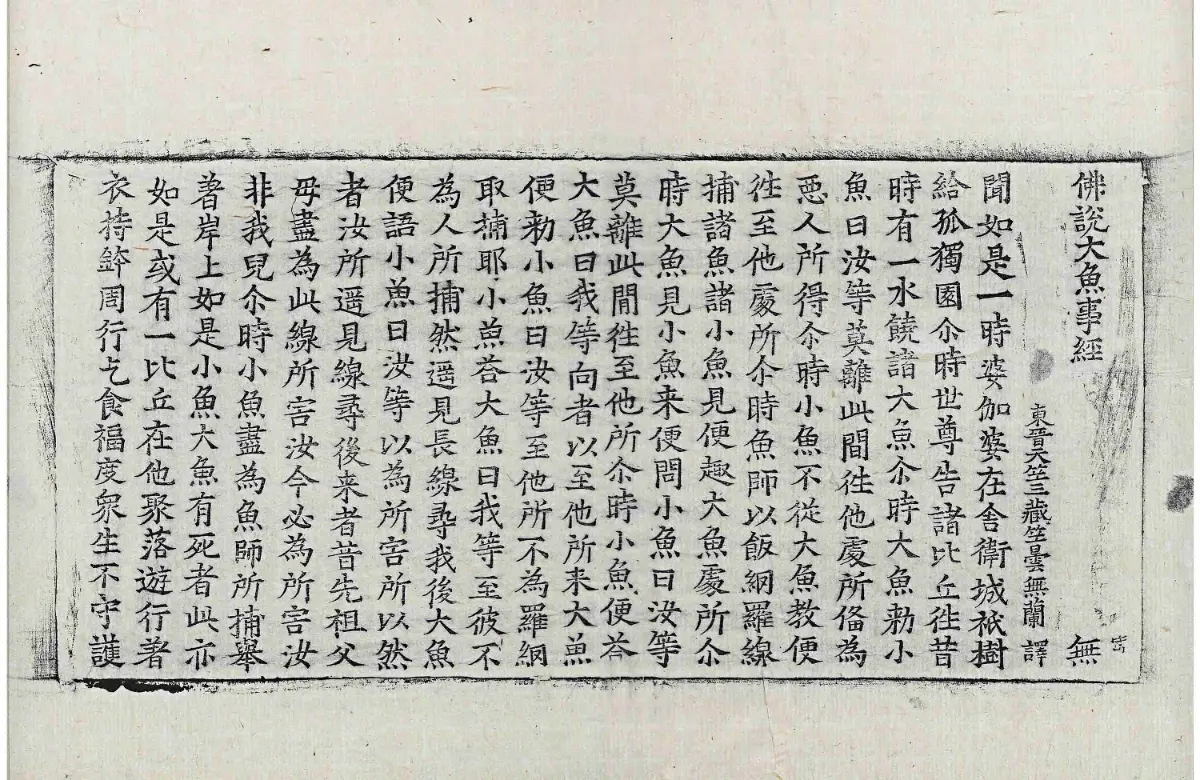 佛說大魚事經 無
東晉天竺三藏竺曇無蘭 譯
聞如是一時婆伽婆在舎衛城祇樹
給孤獨園尒時世尊告諸比丘徃昔
時有一水饒諸大魚尒時大魚勑小
魚曰汝等莫離此間徃他處所俻為
惡人所得尒時小魚不從大魚教便
徃至他處所尒時魚師以飯網羅線
捕諸魚諸小魚見便趣大魚處所尒
時大魚見小魚来便問小魚曰汝等
莫離此間徃至他所尒時小魚便荅
大魚曰我等向者以至他所来大魚
便勑小魚曰汝等至他所不為羅網
取捕耶小魚荅大魚曰我等至彼不
為人所捕然遥見長線尋我後大魚
便語小魚曰汝等以為所害所以然
者汝所遥見線尋後来者昔先祖父
母盡為此線所害汝今必為所害汝
非我兒尒時小魚盡為魚師所捕舉
著岸上如是小魚大魚有死者此亦
如是或有一比丘在他聚落遊行著
衣持鉢周行乞食福度衆生不守護